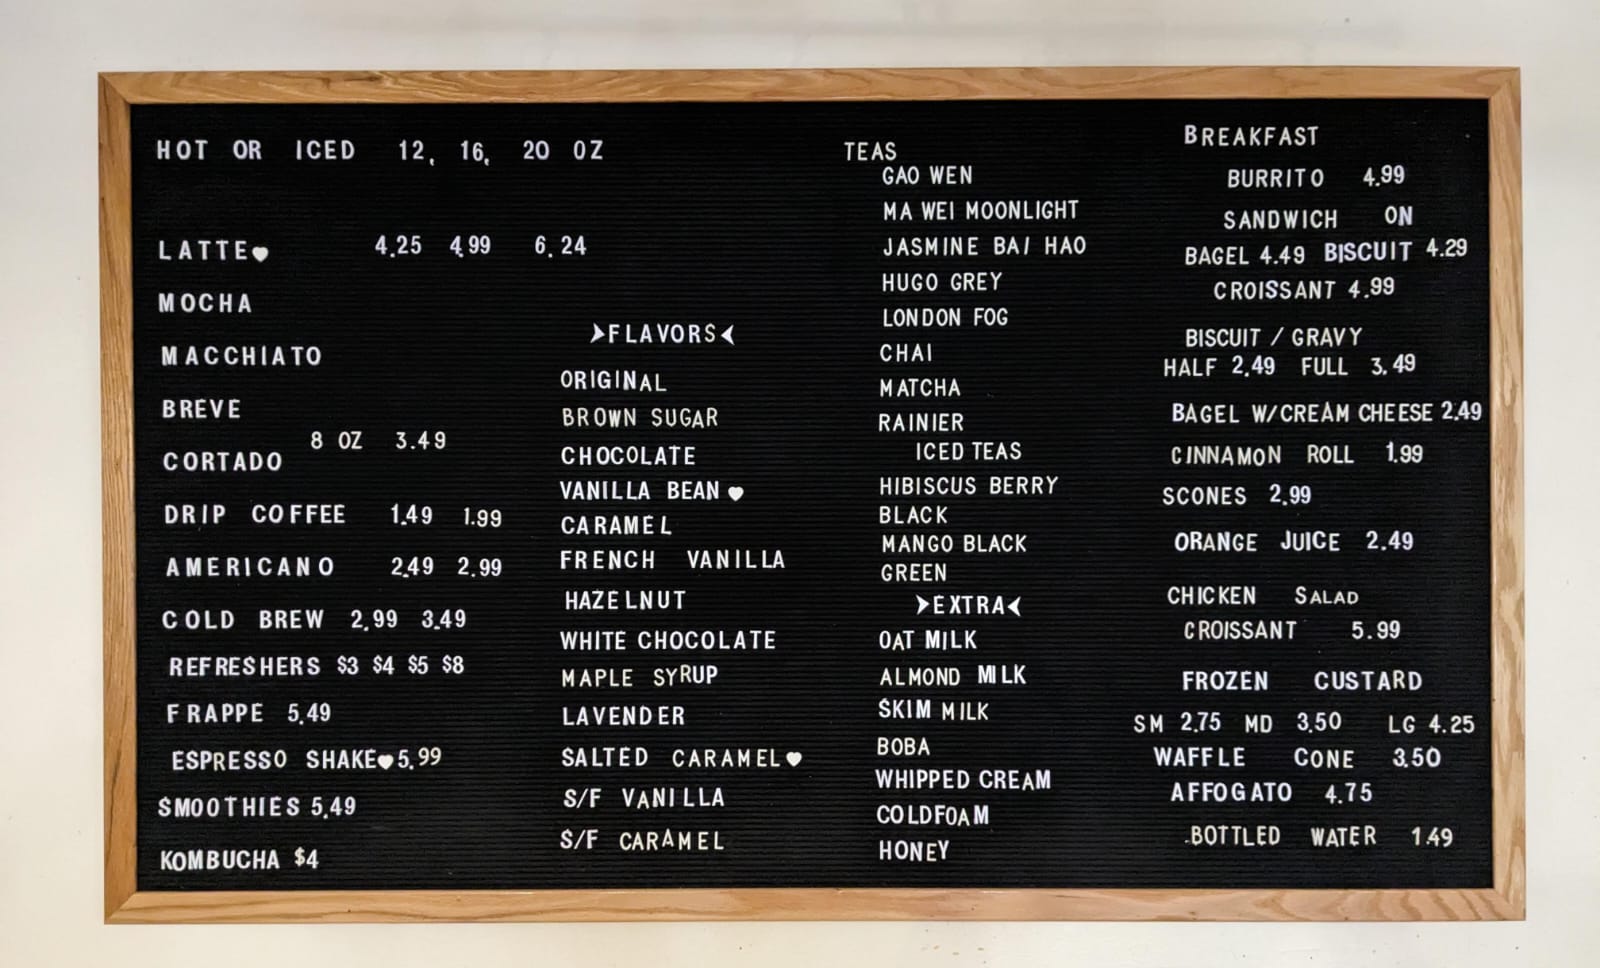 HOT OR ICED 12, 16, 20 OZ
LATTE♥ 4.25 4.99 6.24
MOCHA
MACCHIATO
BREVE
8 OZ 3.49
CORTADO
DRIP COFFEE 1.49 1.99
AMERICANO 2.49 2.99
COLD BREW 2.99 3.49
REFRESHERS $3 $4 $5 $8
FRAPPE 5.49
ESPRESSO SHAKE♥5.99
SMOOTHIES 5.49
KOMBUCHA $4
>FLAVORS<
ORIGINAL
BROWN SUGAR
CHOCOLATE
VANILLA BEAN♥
CARAMEL
FRENCH VANILLA
HAZELNUT
WHITE CHOCOLATE
MAPLE SYRUP
LAVENDER
SALTED CARAMEL♥
S/F VANILLA
S/F CARAMEL
TEAS
GAO WEN
MA WEI MOONLIGHT
JASMINE BAI HAO
HUGO GREY
LONDON FOG
CHAI
MATCHA
RAINIER
ICED TEAS
HIBISCUS BERRY
BLACK
MANGO BLACK
GREEN
>EXTRA<
OAT MILK
ALMOND MILK
SKIM MILK
BOBA
WHIPPED CREAM
COLDFOAM
HONEY
BREAKFAST
BURRITO 4.99
SANDWICH ON
BAGEL 4.49 BISCUIT 4.29
CROISSANT 4.99
BISCUIT / GRAVY
HALF 2.49 FULL 3.49
BAGEL W/CREAM CHEESE 2.49
CINNAMON ROLL 1.99
SCONES 2.99
ORANGE JUICE 2.49
CHICKEN SALAD
CROISSANT 5.99
FROZEN CUSTARD
SM 2.75 MD 3.50 LG 4.25
WAFFLE CONE 3.50
AFFOGATO 4.75
BOTTLED WATER 1.49